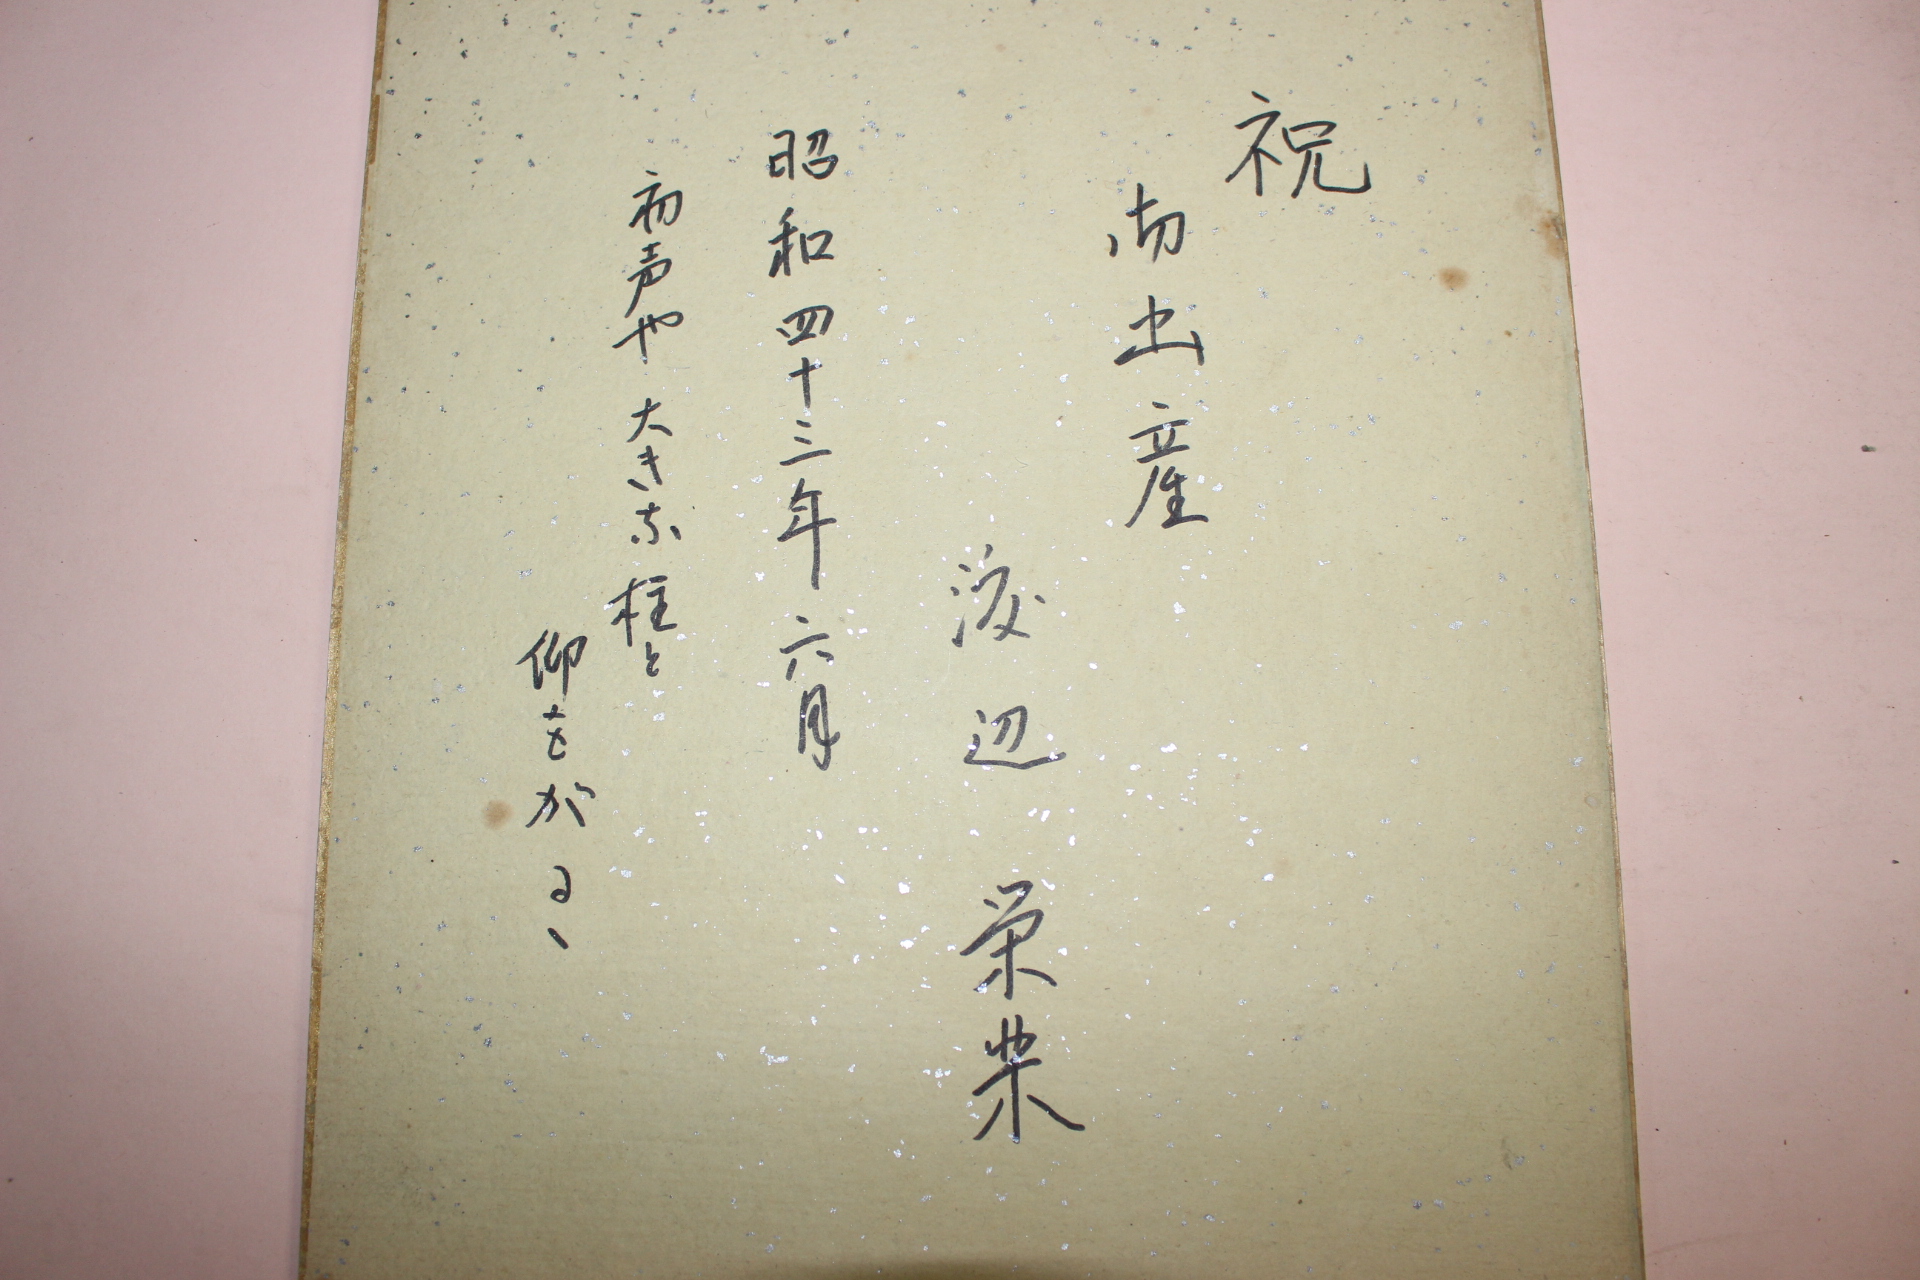 祝
御出産
渡辺 栄
昭和四十三年六月
初声や 大きな 柱と
仰をがるゝ